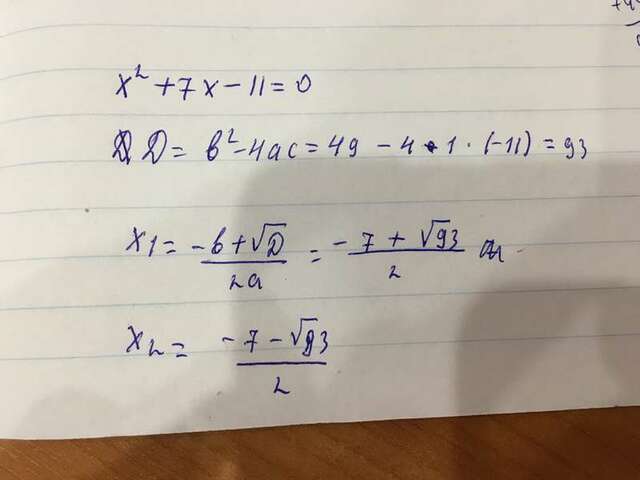 x² + 7x - 11 = 0
D = b² - 4ac = 49 - 4 · 1 · (-11) = 93
x1 = -b + √D / 2a = -7 + √93 / 2
x2 = -7 - √93 / 2